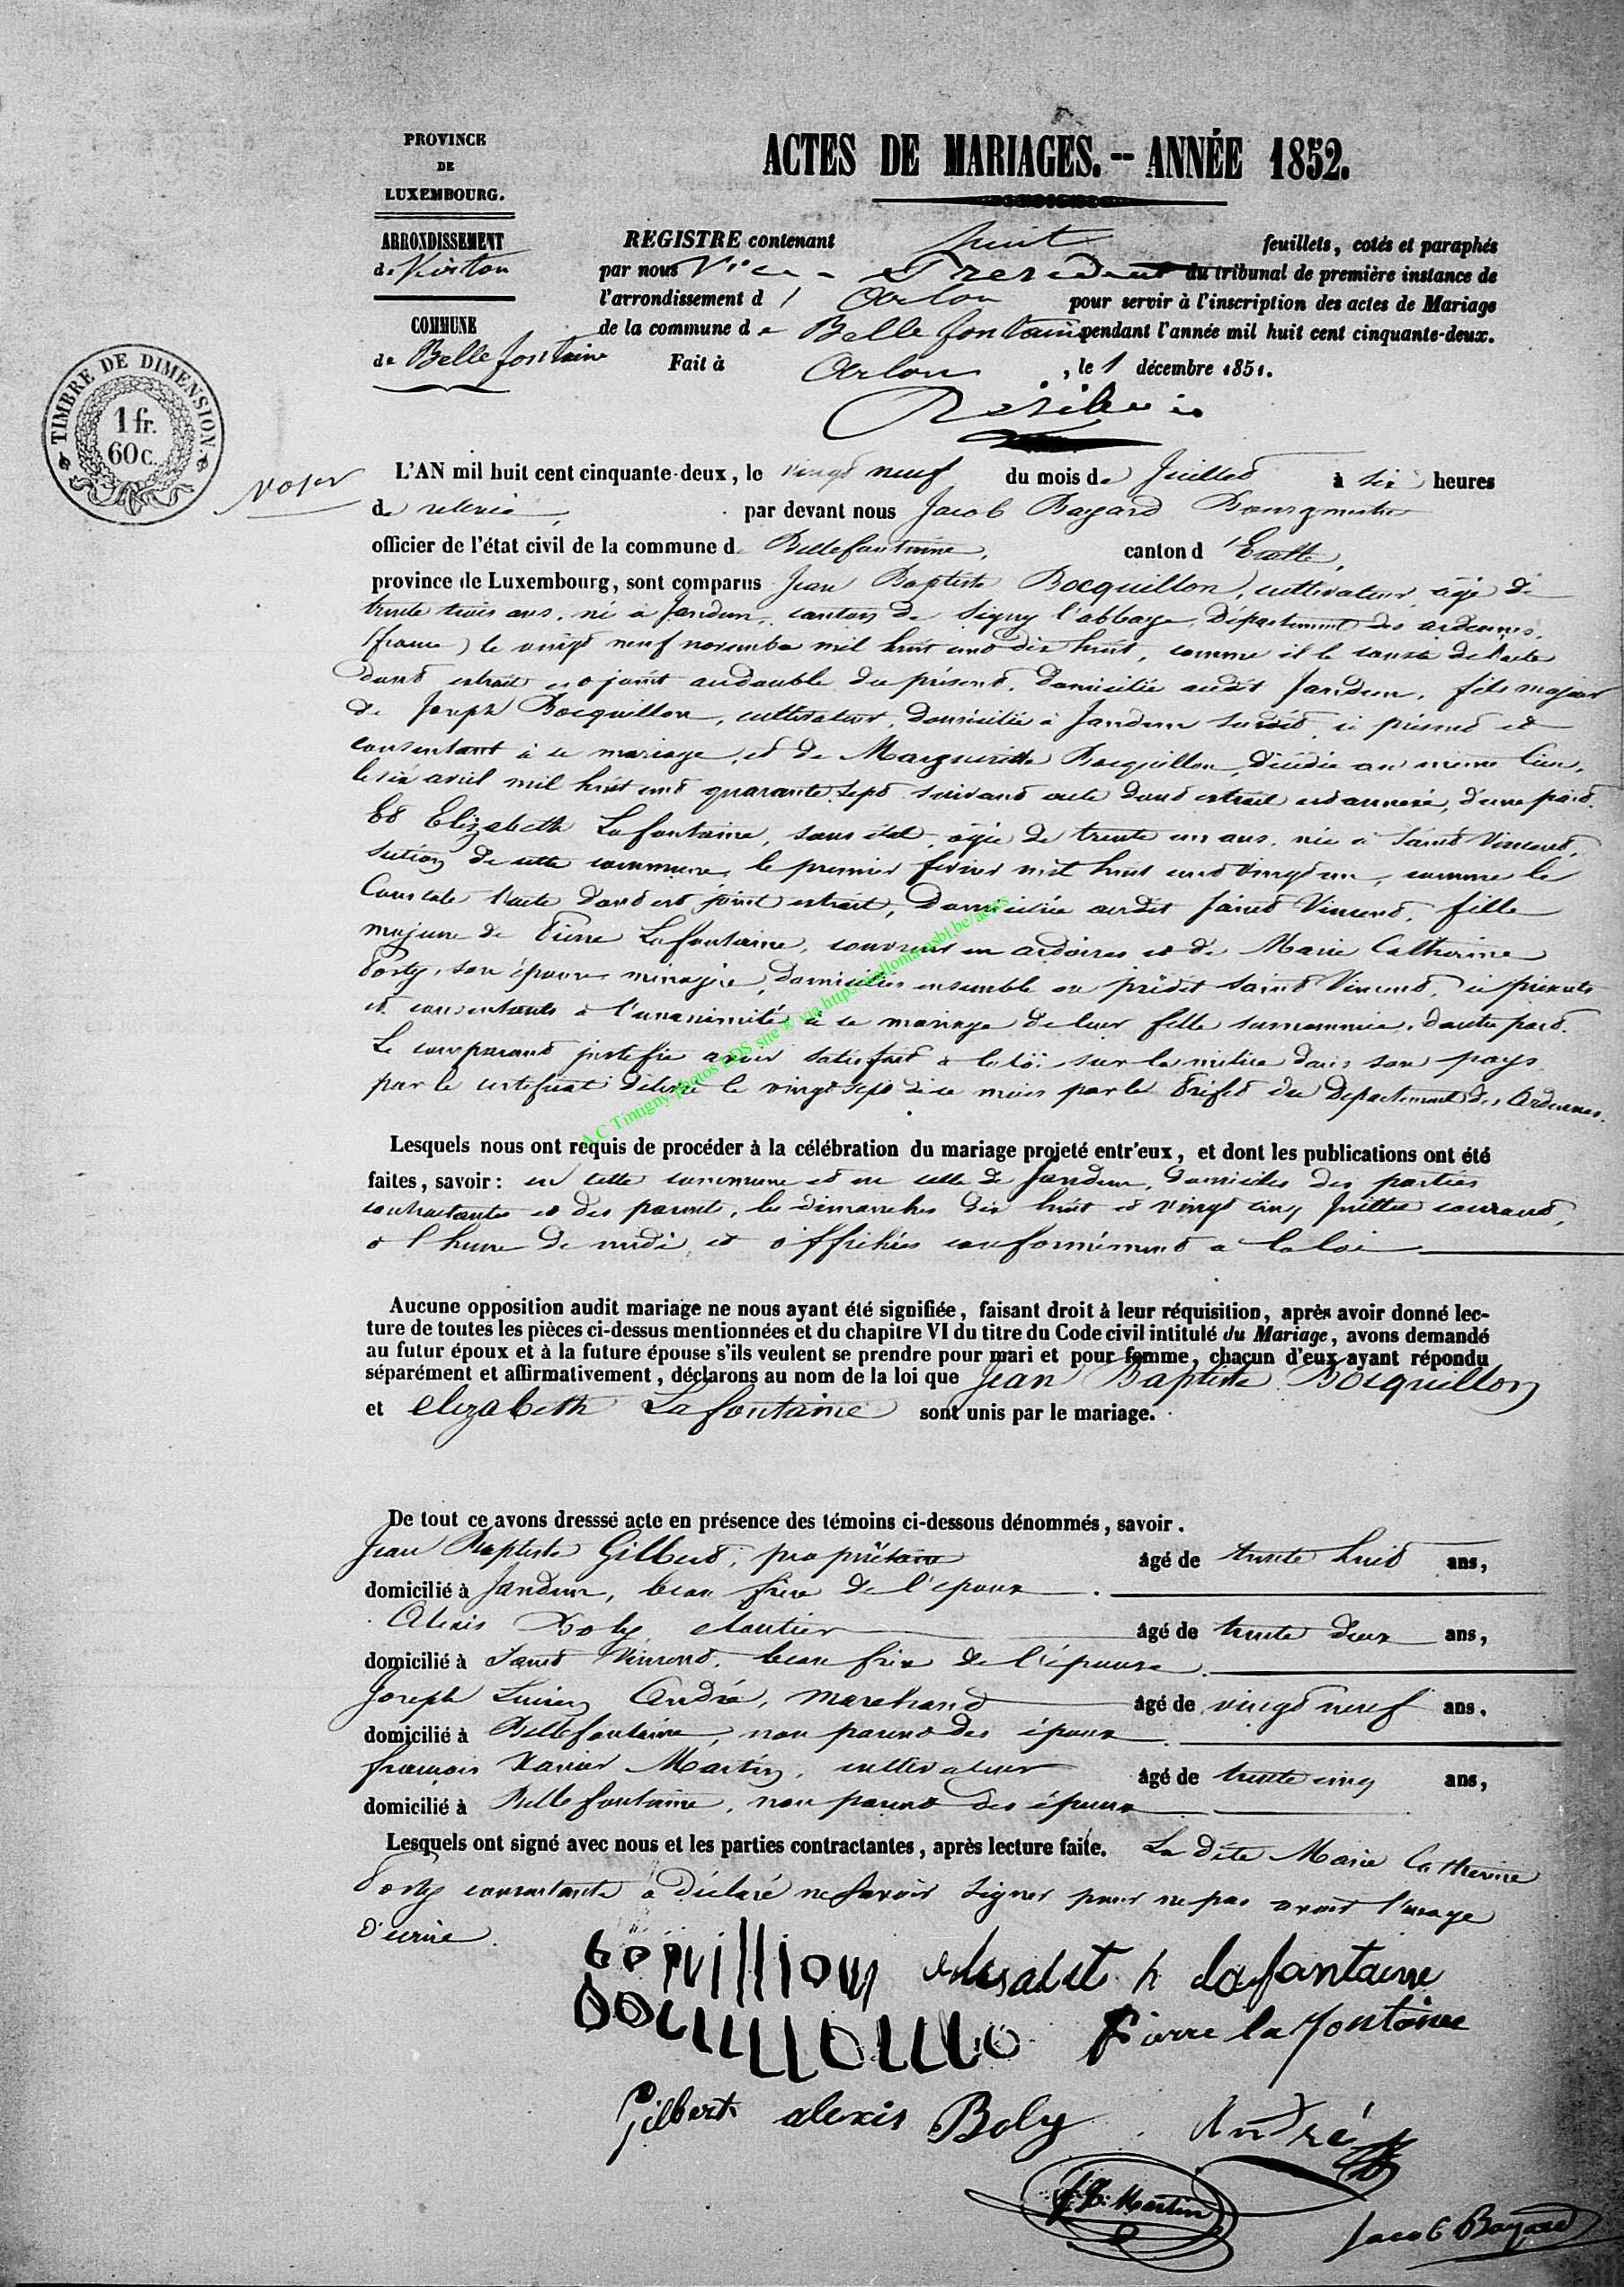 PROVINCE
DE
LUXEMBOURG.
ARRONDISSEMENT
de Virton
COMMUNE
de Bellefontaine
TIMBRE DE DIMENSION
1 fr.
60 c.
ACTES DE MARIAGES. -- ANNÉE 1852.
REGISTRE contenant huit feuillets, cotés et paraphés
par nous Vice-President du tribunal de première instance de
l'arrondissement d'Arlon pour servir à l'inscription des actes de Mariage
de la commune de Bellefontaine pendant l'année mil huit cent cinquante-deux.
Fait à Arlon, le 1 décembre 1851.
L'AN mil huit cent cinquante-deux, le vingt neuf du mois de Juillet à six heures
de relevée, par devant nous Jacob Bayard Bourgmestre
officier de l'état civil de la commune de Bellefontaine, canton d'Etalle,
province de Luxembourg, sont comparus Jean Baptiste Bocquillon, cultivateur, âgé de
trente trois ans, né à Jandun, canton de Signy l'abbaye, Département des ardennes,
(france) le vingt neuf novembre mil huit cent dix huit, comme il le conste de l'acte
dont extrait est joint au double du présent, domicilié audit Jandun, fils majeur
de Joseph Bocquillon, cultivateur, domicilié à Jandun susdit, ici présent et
consentant à ce mariage, et de Marguerite Bocquillon, décédée au même lieu,
le six avril mil huit cent quarante sept suivant acte dont extrait est annexé, d'une part.
Et Elizabeth Lafontaine, sans état, âgée de trente un ans, née à Saint Vincent,
section de cette commune, le premier fevrier mil huit cent vingt un, comme le
Constate l'acte dont est joint extrait, Domiciliée audit Saint Vincent, fille
majeure de Pierre Lafontaine, couvreur en ardoises et de Marie Catherine
Posty, son épouse, ménagère, domiciliés ensemble au prédit Saint Vincent, ici présents
et consentants à l'unanimité à ce mariage de leur fille surnommée, d'autre part.
Le comparant justifie avoir satisfait à la loi sur la milice dans son pays
par le certificat délivré le vingt sept de ce mois par le Préfet du Departement des Ardennes.
A.C Tintigny-photos LDS site ® via http://galloma-asbl.be/actes
Lesquels nous ont requis de procéder à la célébration du mariage projeté entr'eux, et dont les publications ont été
faites, savoir: en cette commune et en celle de Jandun, domiciles des parties
contractantes et des parents, les dimanches dix huit et vingt cinq Juillet courant,
à l'heure de midi, et affichées conformément à la loi
Aucune opposition audit mariage ne nous ayant été signifiée, faisant droit à leur réquisition, après avoir donné lec-
ture de toutes les pièces ci-dessus mentionnées et du chapitre VI du titre du Code civil intitulé du Mariage, avons demandé
au futur époux et à la future épouse s'ils veulent se prendre pour mari et pour femme, chacun d'eux ayant répondu
séparément et affirmativement, déclarons au nom de la loi que Jean Baptiste Bocquillon
et elizabeth Lafontaine sont unis par le mariage.
De tout ce avons dresssé acte en présence des témoins ci-dessous dénommés, savoir.
Jean Baptiste Gilbert, propriétaire âgé de trente huit ans,
domicilié à Jandun, beau frère de l'époux
Alexis Boly cloutier âgé de trente deux ans,
domicilié à Saint Vincent, beau frère de l'épouse
Joseph Lucien André, marchand âgé de vingt neuf ans,
domicilié à Bellefontaine, non parent des époux
françois Xavier Martin, cultivateur âgé de trente cinq ans,
domicilié à Bellefontaine, non parent des époux
Lesquels ont signé avec nous et les parties contractantes, après lecture faite. La dite Marie Catherine
Posty consentante a déclaré ne savoir signer pour ne pas avoir l'usage
d'écrire.
elisabet h Lafontaine
Pierre lafontaine
Gilbert alexis Boly André
Martin
Jacob Bayard